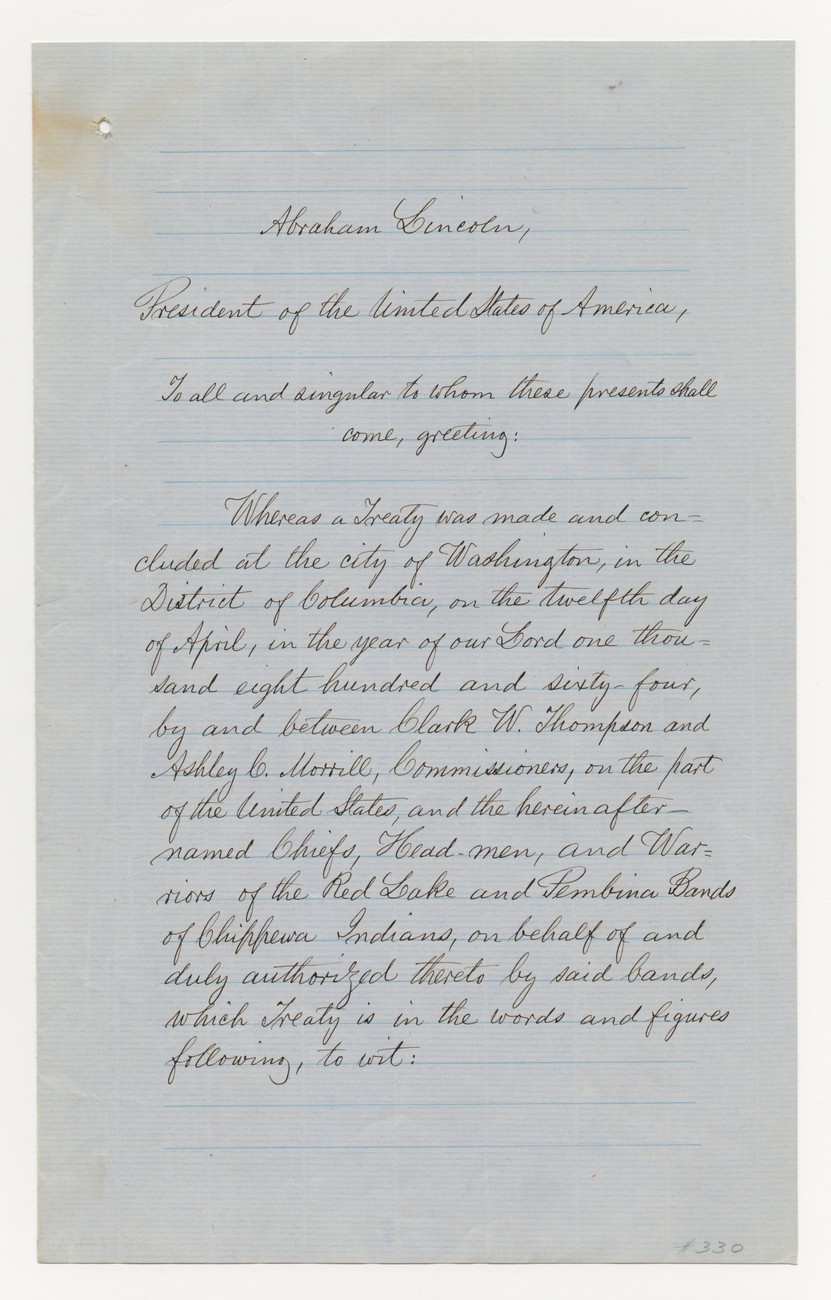 Abraham Lincoln,
President of the United States of America,
To all and singular to whom these presents shall
come, greeting:
Whereas a Treaty was made and con=
cluded at the city of Washington, in the
District of Columbia, on the twelfth day
of April, in the year of our Lord one thou=
sand eight hundred and sixty-four,
by and between Clark W. Thompson and
Ashley C. Morrill, Commissioners, on the part
of the United States, and the hereinafter-
named Chiefs, Head-men, and War=
riors of the Red Lake and Pembina Bands
of Chippewa Indians, on behalf of and
duly authorized thereto by said bands,
which Treaty is in the words and figures
following, to wit:
#330